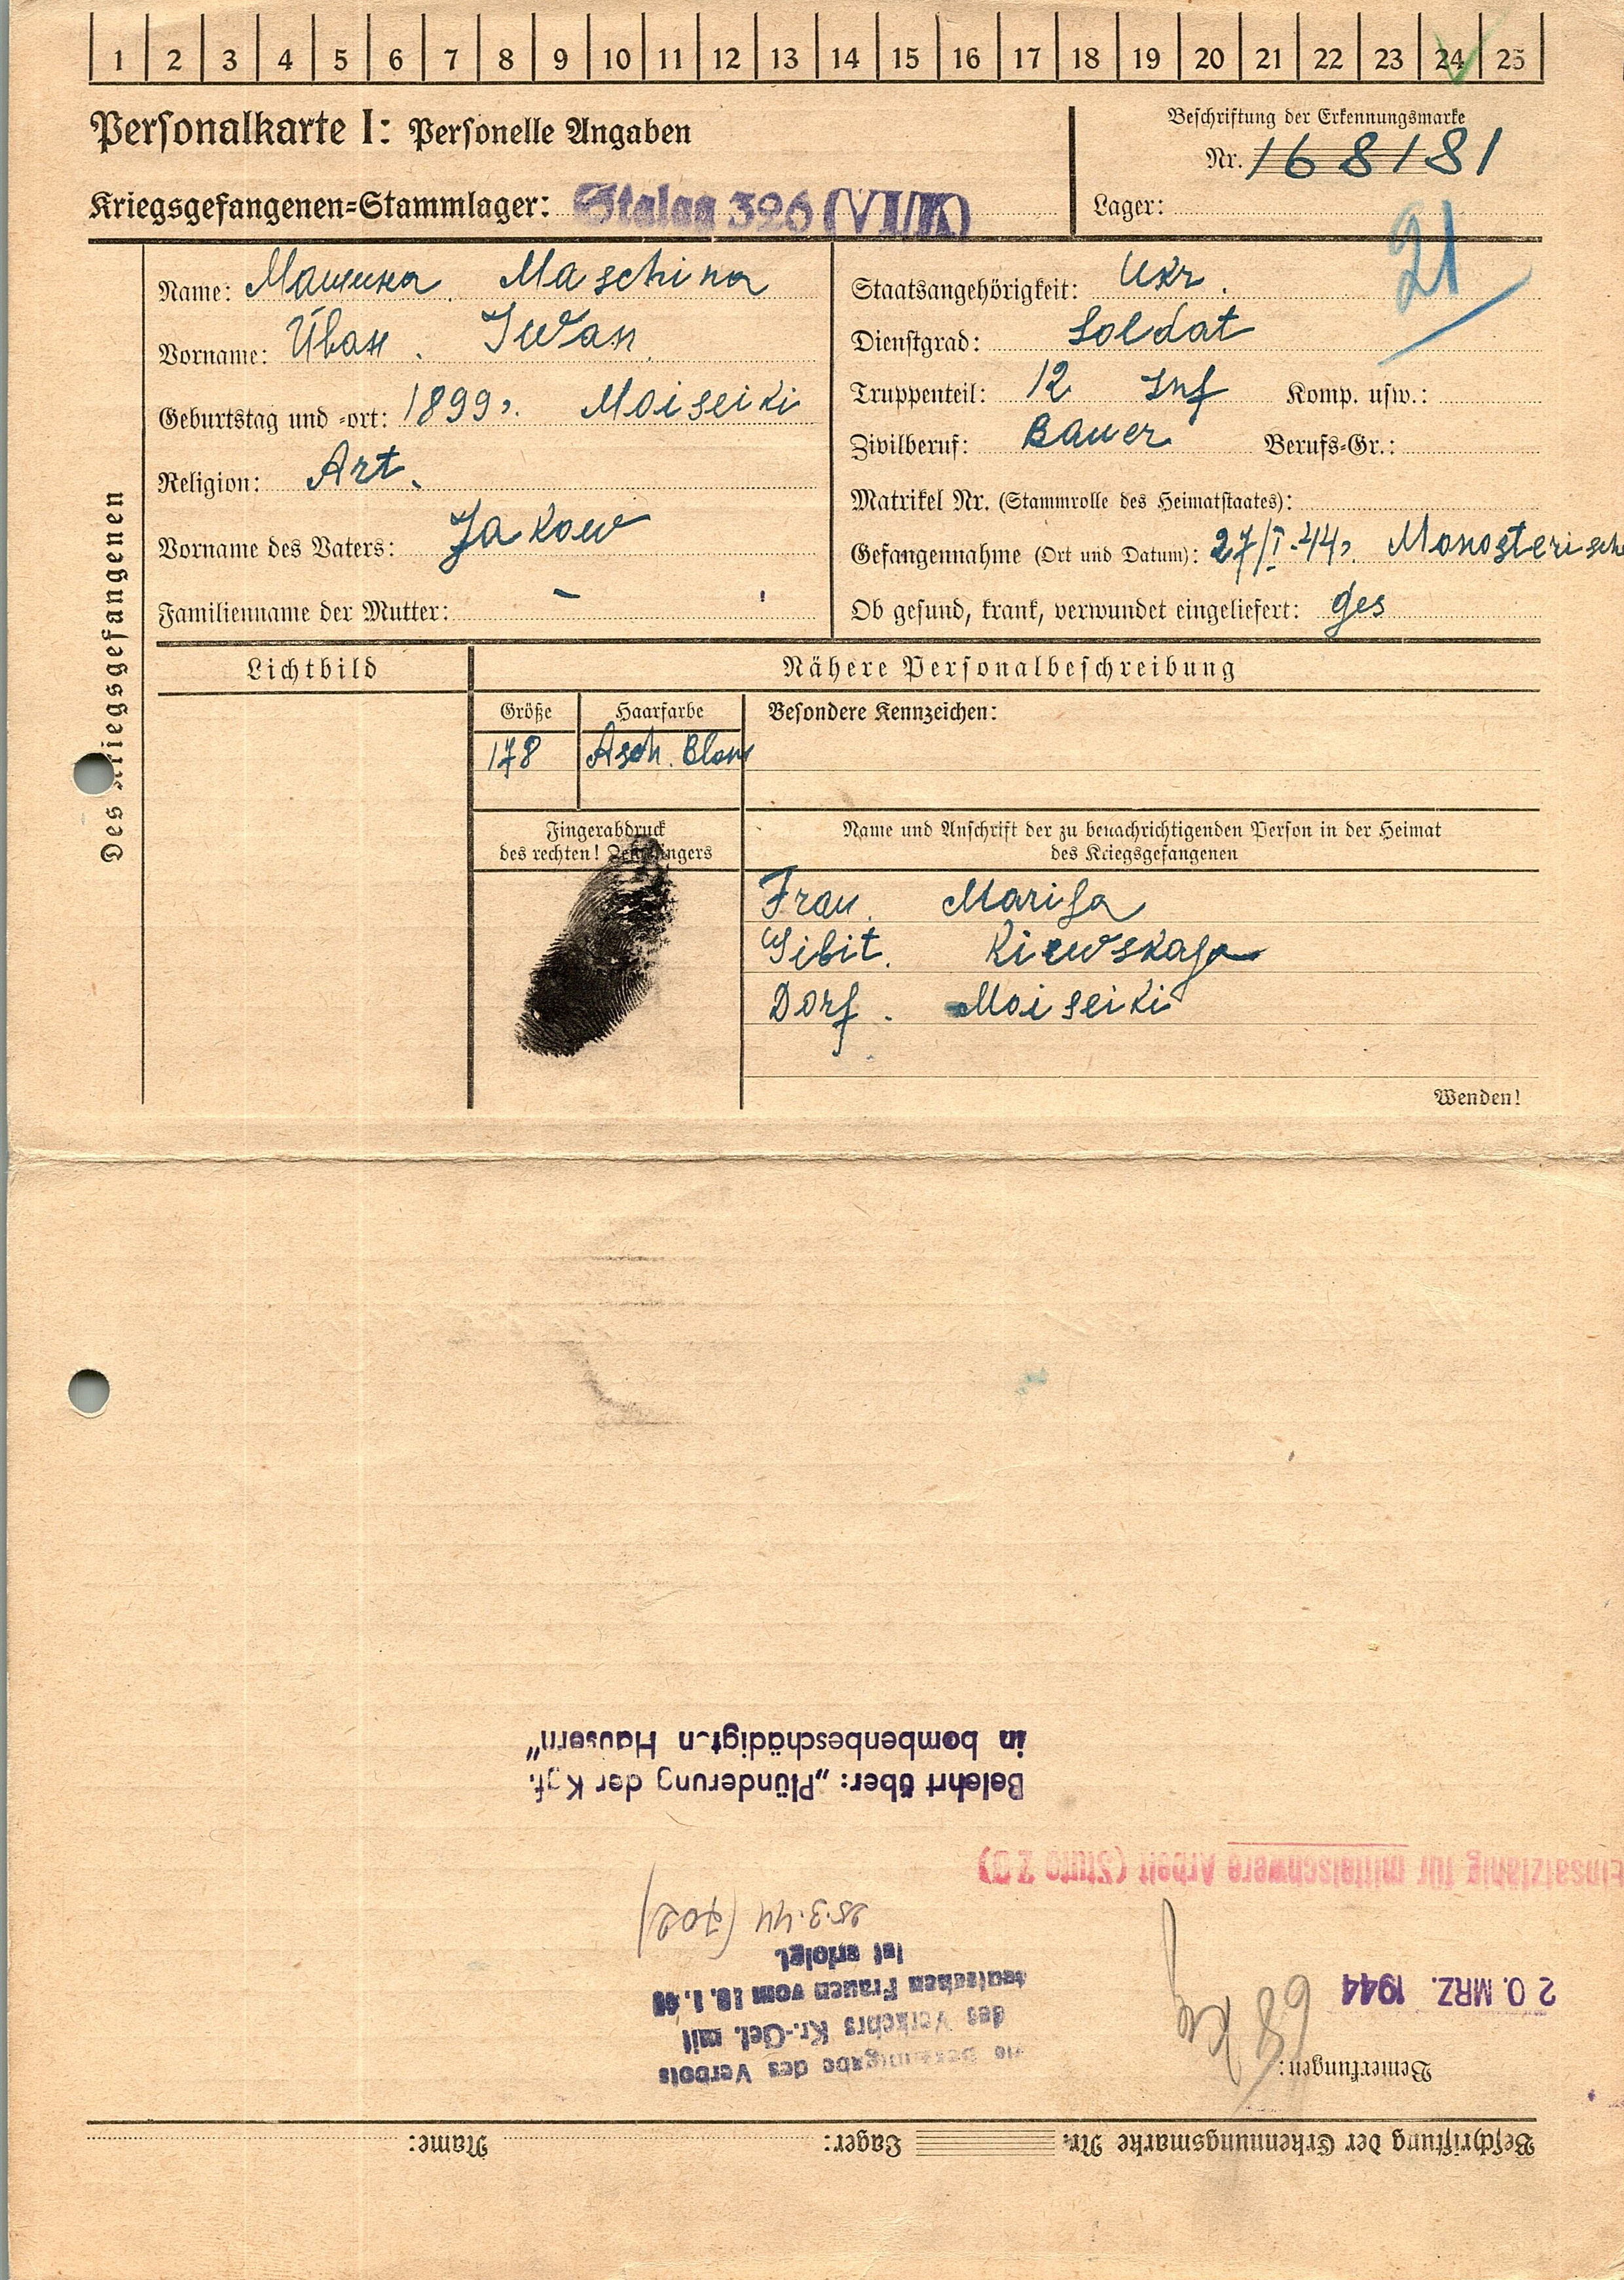 1 2 3 4 5 6 7 8 9 10 11 12 13 14 15 16 17 18 19 20 21 22 23 24 25
Personalkarte I: Personelle Angaben
Beschriftung der Erkennungsmarke
Nr. 168181
Kriegsgefangenen=Stammlager: Stalag 326 (VI/K)
Lager:
21
Des Kriegsgefangenen
Name: Машина. Maschina
Vorname: Иван. Iwan
Geburtstag und =ort: 1899, Moiseiki
Religion: Art.
Vorname des Vaters: Jakow
Familienname der Mutter: –
Staatsangehörigkeit: Ukr.
Dienstgrad: Soldat
Truppenteil: 12 Inf Komp. usw.:
Zivilberuf: Bauer Berufs=Gr.:
Matrikel Nr. (Stammrolle des Heimatstaates):
Gefangennahme (Ort und Datum): 27/I.44, Monosterisch
Ob gesund, krank, verwundet eingeliefert: ges
Lichtbild
Nähere Personalbeschreibung
Größe Haarfarbe Besondere Kennzeichen:
178 Asch. Blon
Fingerabdruck
des rechten! Zeigefingers
Name und Anschrift der zu benachrichtigenden Person in der Heimat
des Kriegsgefangenen
Frau. Marija
Gibit. Kiewskaja
Dorf. Moiseiki
Wenden!
Beschriftung der Erkennungsmarke Nr. Lager: Name:
Bemerkungen:
20. MRZ. 1944
68
Bekanntgabe des Verbots
des Verkehrs Kr.-Gef. mit
deutschen Frauen vom 10.1.40
ist erfolgt.
25.3.44 (702)
Einsatzfähig für mittelschwere Arbeit (Stufe
Belehrt über: „Plünderung der Kgf.
in bombenbeschädigten Häusern"